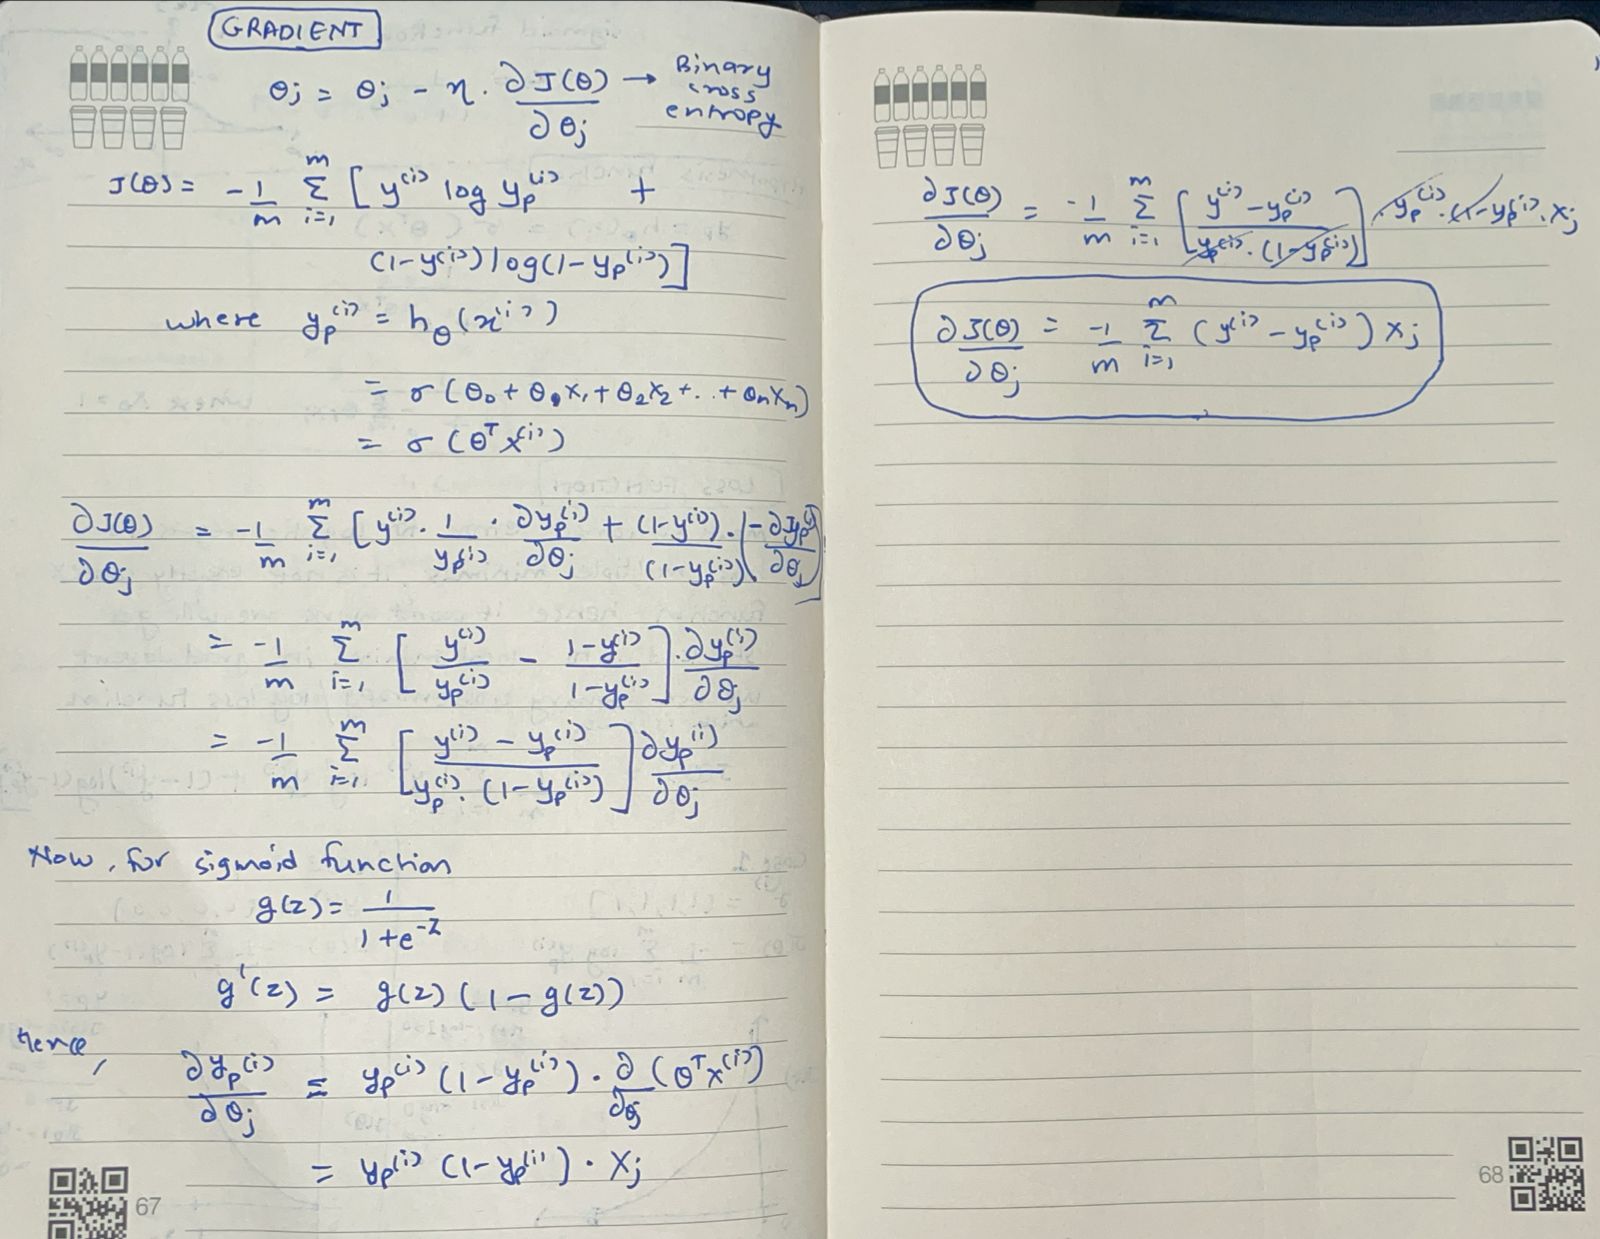 GRADIENT
θj = θj - η . ∂J(θ)/∂θj → Binary cross entropy
J(θ) = -1/m Σ_{i=1}^{m} [ y^(i) log yp^(i) +
(1-y^(i)) log(1-yp^(i)) ]
where yp^(i) = hθ(x^(i))
= σ(θ0 + θ1x1 + θ2x2 + .. + θnxn)
= σ(θ^T x^(i))
∂J(θ)/∂θj = -1/m Σ_{i=1}^{m} [ y^(i) . 1/yp^(i) . ∂yp^(i)/∂θj + (1-y^(i))/(1-yp^(i)) . (-∂yp^(i)/∂θj) ]
= -1/m Σ_{i=1}^{m} [ y^(i)/yp^(i) - 1-y^(i)/1-yp^(i) ] . ∂yp^(i)/∂θj
= -1/m Σ_{i=1}^{m} [ y^(i) - yp^(i) / yp^(i) . (1-yp^(i)) ] ∂yp^(i)/∂θj
Now, for sigmoid function
g(z) = 1/1+e^-z
g'(z) = g(z)(1-g(z))
Hence,
∂yp^(i)/∂θj = yp^(i) (1-yp^(i)) . ∂/∂θj (θ^T x^(i))
= yp^(i) (1-yp^(i)) . xj
67
∂J(θ)/∂θj = -1/m Σ_{i=1}^{m} [ y^(i) - yp^(i) / yp^(i) . (1-yp^(i)) ] . yp^(i) . (1-yp^(i)) . xj
∂J(θ)/∂θj = -1/m Σ_{i=1}^{m} (y^(i) - yp^(i)) xj
68